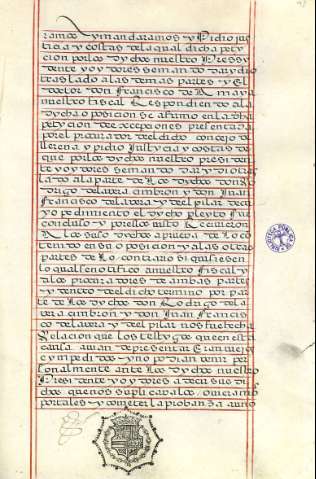 ramos y mandaramos y Pidio jus
ticia y costas de la qual dicha peti
cion por los dychos nuestro Pressy
dente y oydores se mando dar y dio
traslado a las demas partes y El
doctor don Francisco de Amaya
nuestro fiscal Respondiendo a la
dycha oposicion se afirmo en la dicha
peticion de excepciones presentada
por el procurador del dicho concejo de
llerena y pidio Justycia y costas de lo
que por los dychos nuestro presiden
te y oydores se mando dar y dio tras
lado a la parte de los dychos don Ro
drigo de la vera cimbron y don Juan
Francisco de la vera y del pilar de cu
yo pedimiento el dycho pleyto fue
concluso y por ellos visto Recivieron
A los suso dychos a prueva de lo con
tenido en su oposicion y a las otras
partes de Lo contrario si quisiesen
lo qual se notifico a nuestro fiscal y
a los procuradores de ambas partes
y dentro del dicho termino por par
te de Los dychos don Rodrigo de la
vera cimbron y don Juan Francis
co de la vera y del pilar nos fue hecha
Relacion que los testygos que en esta
causa avian de presentar Eran viejos
e ympedidos y no podian venir per
sonalmente ante Los dychos nuestro
Presidente y oydores a decir sus di
chos que nos suplicavalos oviramos
por tales y cometer la probanza a uno